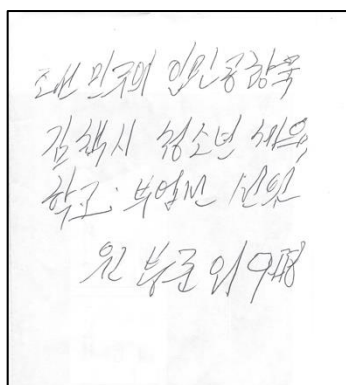 조선 민주의 인민공화국
김책시 청소년 체육
학교. 부업선 선원
외 9명